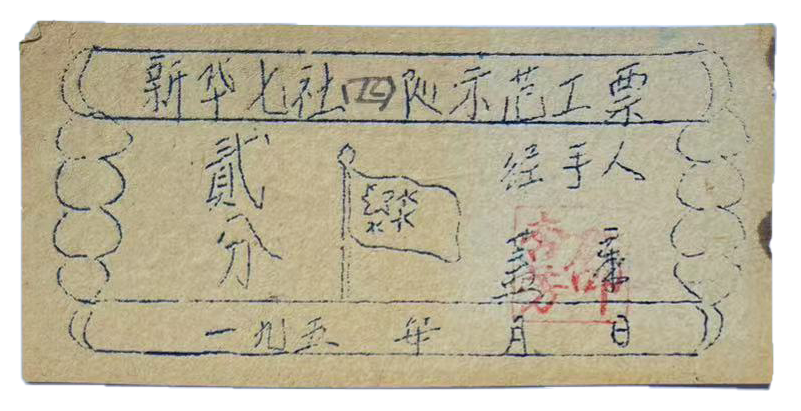 新华七社(四)队示范工票
貳分
经手人
一九五 年 月 日